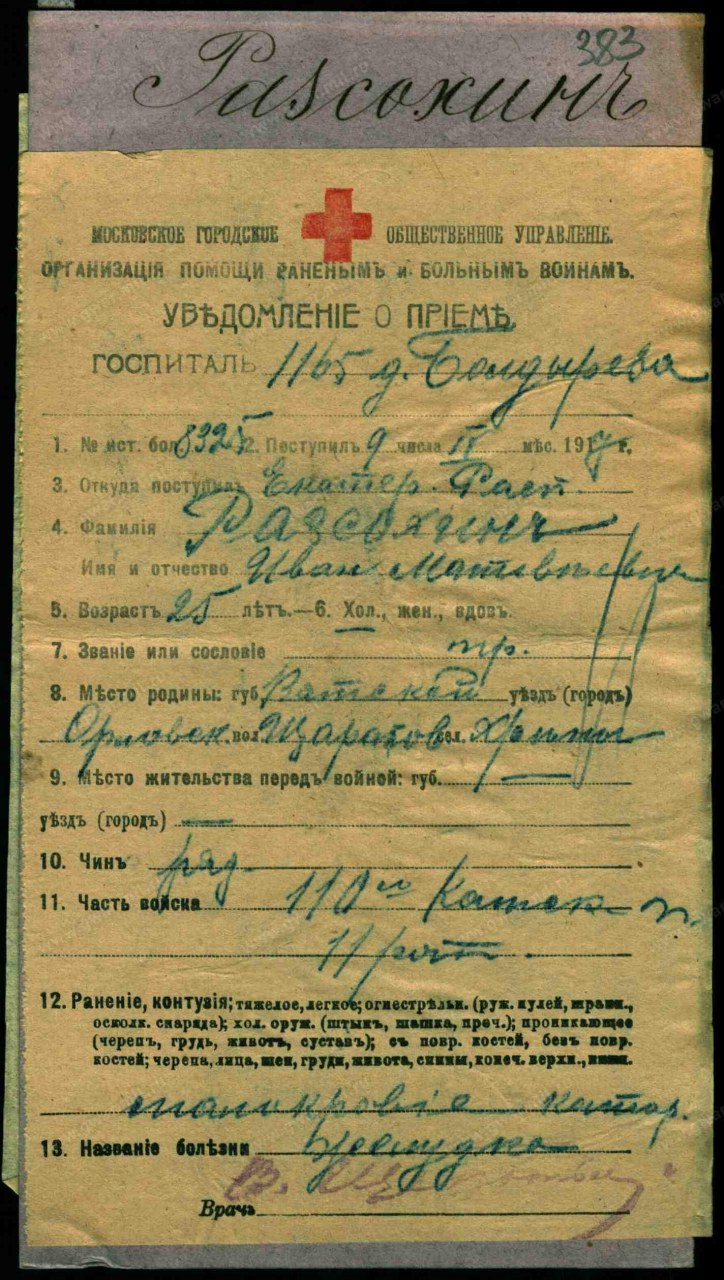 383
Разсохинъ
МОСКОВСКОЕ ГОРОДСКОЕ ОБЩЕСТВЕННОЕ УПРАВЛЕНІЕ.
ОРГАНИЗАЦІЯ ПОМОЩИ РАНЕНЫМЪ и БОЛЬНЫМЪ ВОИНАМЪ.
УВѢДОМЛЕНІЕ О ПРІЕМѢ.
ГОСПИТАЛЬ 1165 д. Болдырева
1. № ист. бол. 8325 2. Поступилъ 9 числа IV мѣс. 191 г.
3. Откуда поступилъ Екатер. Расп.
4. Фамилія Разсохинъ
Имя и отчество Иван Матвѣевичъ
5. Возрастъ 25 лѣтъ.—6. Хол., жен., вдовъ.
7. Званіе или сословіе
8. Мѣсто родины: губ. Вятской уѣздъ (городъ)
Орловск. вол. сел.
9. Мѣсто жительства передъ войной: губ. —
уѣздъ (городъ) —
10. Чинъ ряд.
11. Часть войска 110 Камск п.
11 рот.
12. Раненіе, контузія; тяжелое, легкое; огнестрѣльн. (руж. пулей, шрапн.,
осколк. снаряда); хол. оруж. (штыкъ, шашка, проч.); проникающее
(черепъ, грудь, животъ, сустав); съ повр. костей, безъ повр.
костей; черепа, лица, шеи, груди, живота, спины, конеч. верхн., нижн.
малокровіе катар.
13. Названіе болѣзни желудка
Врачъ